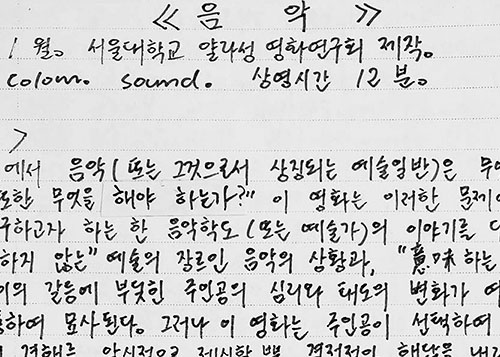 ≪ 음 악 ≫
1 월。 서울대학교 얄라셩 영화연구회 제작。
colour. sound. 상영시간 12 분。
>
에서 음악(또는 그것으로서 상징되는 예술일반)은 무엇
또한 무엇을 해야 하는가?" 이 영화는 이러한 문제에
구하고자 하는 한 음악학도(또는 예술가)의 이야기를 다
하지 않는" 예술의 장르인 음악의 상황과, "意味하는
이의 갈등에 부딪힌 주인공의 심리와 태도의 변화가 여
하여 묘사된다. 그러나 이 영화는 주인공이 선택하여
암시적으로 제시할 뿐 결정적인 해답을